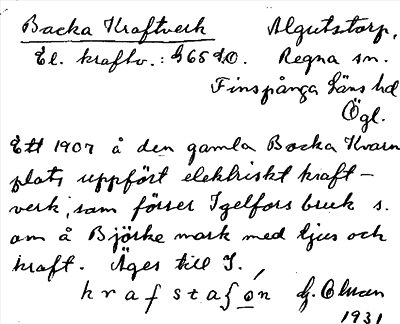 Backa Kraftverk Algutstorp,
El. kraftv.: G65 S.O. Regna sn.
Finspånga läns hd
Ögl.
Ett 1907 å den gamla Backa Kvarn
plats uppfört elektriskt kraft-
verk, som förser Igelfors bruk s.
om å Björke mark med ljus och
kraft. Äges till I.
krafsta ́n G.
1931